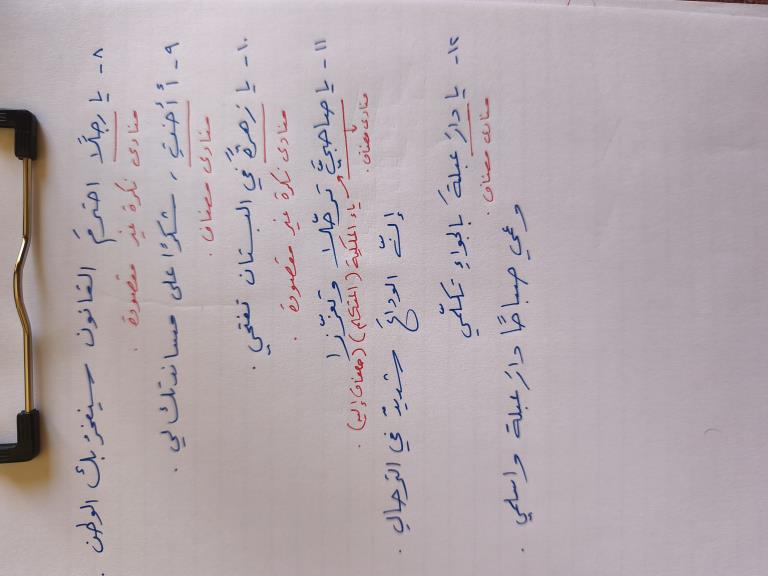 ٨- يا رجلًا احترمَ القانون سيفخر بك الوطن .
منادى نكرة غير مقصودة .
٩- أ أختِ ، شكرًا على مساندتك لي .
منادى مضاف .
١٠- يا زهرةً في البستان تفتحي .
منادى نكرة غير مقصودة .
١١- يا صاحبيَّ ترجّلا وتعزّزا
منادى مضاف .
ياء الملكية (المتكلم) (مضاف إليه) .
إنّ الوداعَ شديدٌ في الترحالِ .
١٢- يا دارَ عبلةَ بالجواءِ تكلّمي
منادى مضاف .
وعمي صباحًا دارَ عبلة واسلمي .